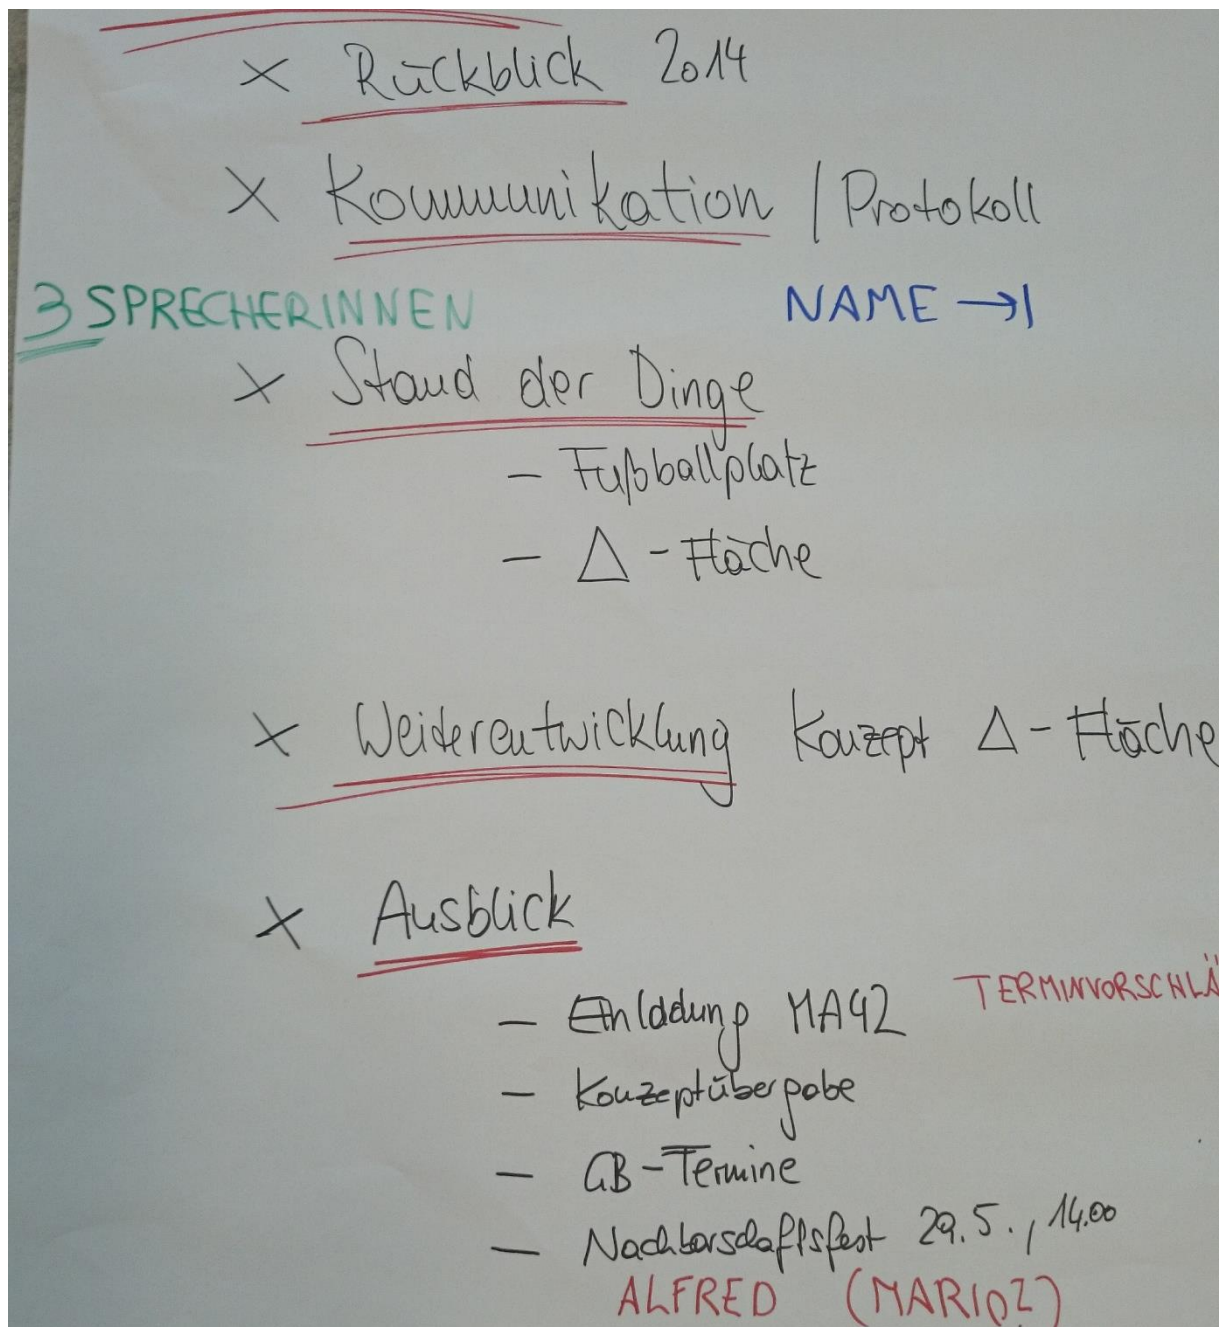 x Rückblick 2014
x Kommunikation / Protokoll
3 SPRECHERINNEN NAME →|
x Stand der Dinge
- Fußballplatz
- Δ - Fläche
x Weiterentwicklung Konzept Δ - Fläche
x Ausblick
- Einladung MA42 TERMINVORSCHLÄ
- Konzeptübergabe
- GB-Termine
- Nachbarschaftsfest 29.5., 14.00
ALFRED (MARIO?)